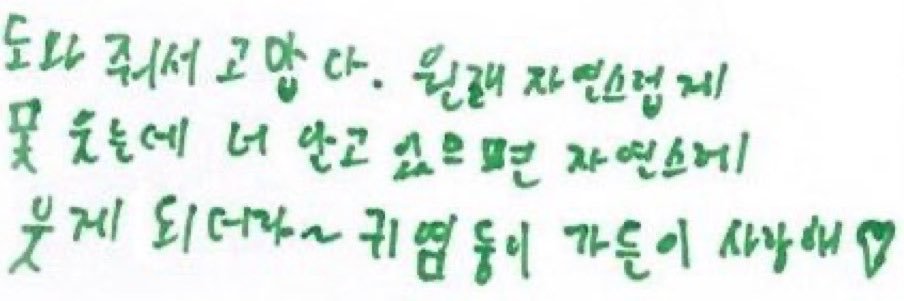 도와 줘서 고맙다. 원래 자연스럽게
못 웃는데 너 안고 있으면 자연스레
웃게 되더라~ 귀염둥이 가든이 사랑해♡